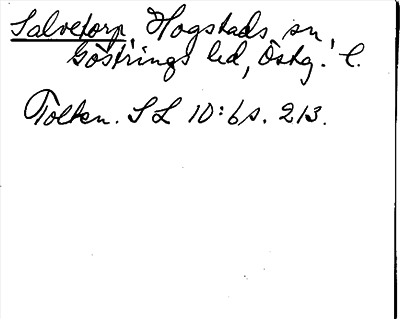 Salvetorp, Hogstads sn,
Göstrings hd, Östg. l.
Tolkn. SL 10:6 s. 213.